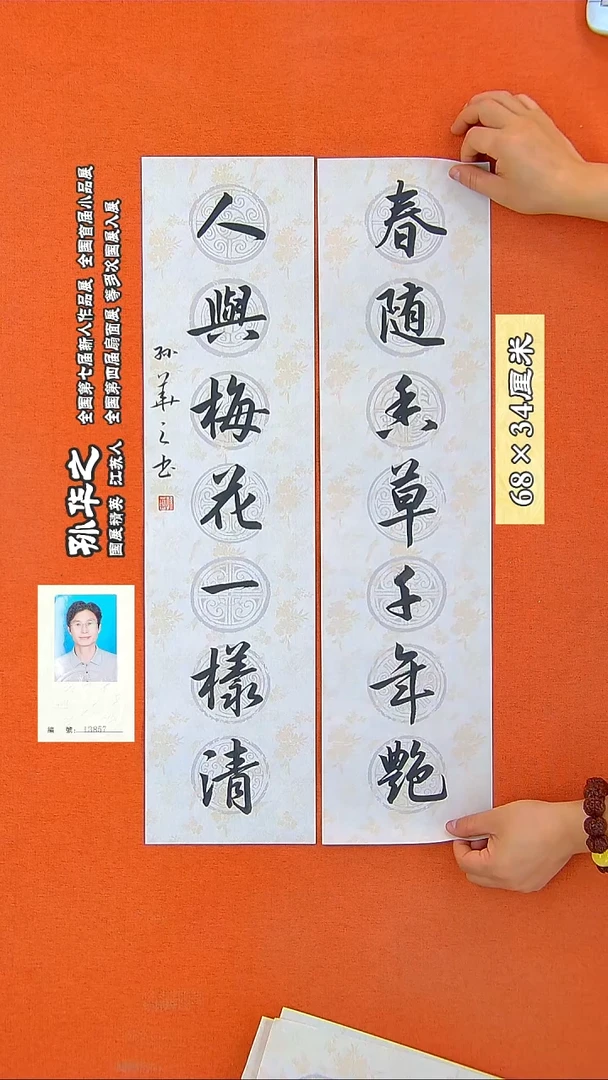 春随香草千年艳
人與梅花一樣清
孙華之书
68×34厘米
孙华之
国展精英 江苏人
全国第七届新人作品展 全国首届小品展
全国第四届扇面展 等多次国展入展
編 號：13857